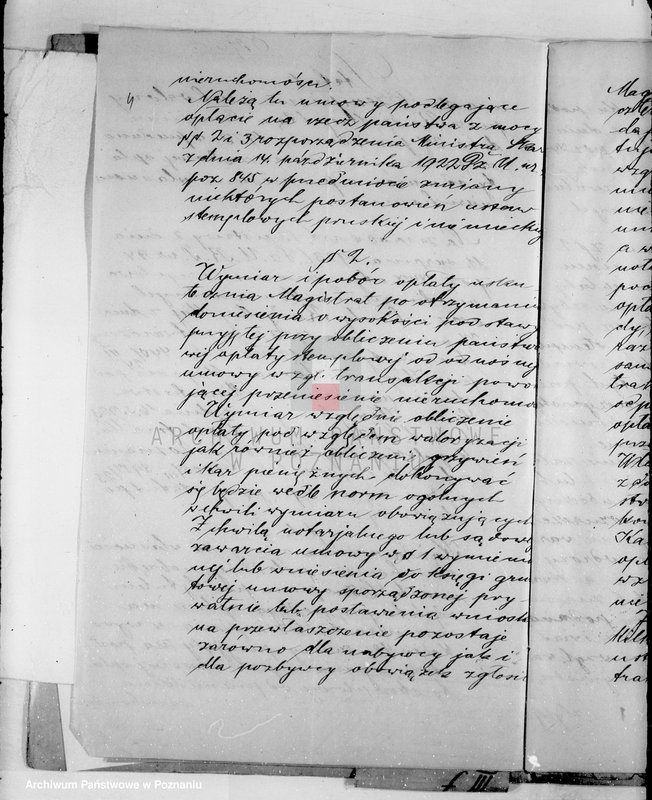 nieruchomości.
Należą tu umowy podlegające
opłacie na rzecz państwa z mocy
§§ 2 i 3 rozporządzenia Ministra Skar
z dnia 14. października 1922 Dz. U. nr.
poz 845 w przedmiocie zmiany
niektórych postanowień ustaw
stemplowych pruskiej i niemieckiej
§ 2.
Wymiar i pobór opłaty usku
tecznia Magistrat po otrzymaniu
doniesienia o wysokości podstawy
przyjętej przy obliczeniu państwo
wej opłaty stemplowej od odnośnej
umowy wzgl. transakcji powo
jącej przeniesienie nieruchomo
Wymiar względnie obliczenie
opłaty pod względem waloryzacji
jak również obliczenie grzywien
i kar pieniężnych dokonywać
się będzie wedle norm ogólnych
w chwili wymiaru obowiązujących
Z chwilą notarjalnego lub sądowego
zawarcia umowy w § 1 wymienio
nej lub wniesienia do księgi grun
towej umowy sporządzonej pry
watnie lub postawienia wniosku
na przewłaszczenie pozostaje
zarówno dla nabywcy jak i
dla pozbywcy obowiązek zgłosić
ARCHIWUM PAŃSTWOWE
W POZNANIU
Archiwum Państwowe w Poznaniu